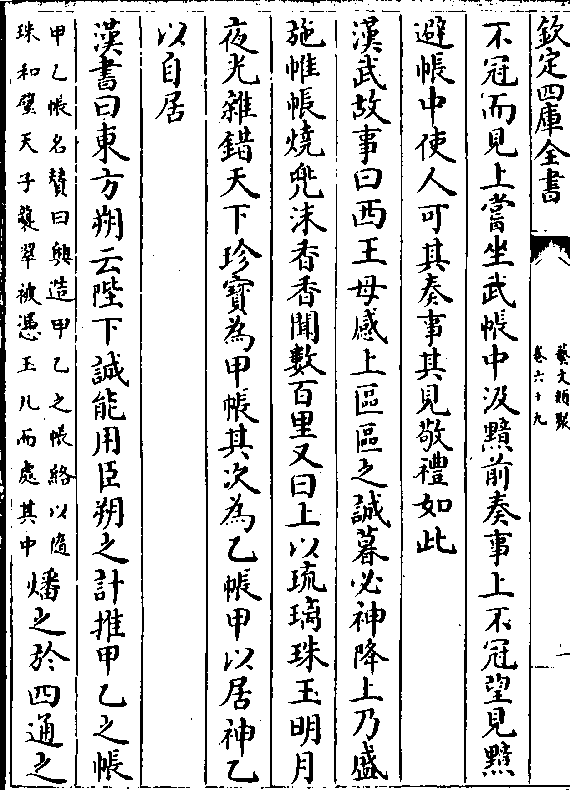 欽定四庫全書
藝文類聚
卷六十九
不冠而見上嘗坐武帳中汲黯前奏事上不冠望見黯
避帳中使人可其奏事其見敬禮如此
漢武故事曰西王母感上區區之誠暮必神降上乃盛
施帷帳燒兠沫香香聞數百里又曰上以琉璃珠玉明月
夜光雜錯天下珍寶為甲帳其次為乙帳甲以居神乙
以自居
漢書曰東方朔云陛下誠能用臣朔之計推甲乙之帳
甲乙帳名賛曰興造甲乙之帳絡以隨
珠和璧天子襲翠被憑玉几而處其中
燔之於四通之